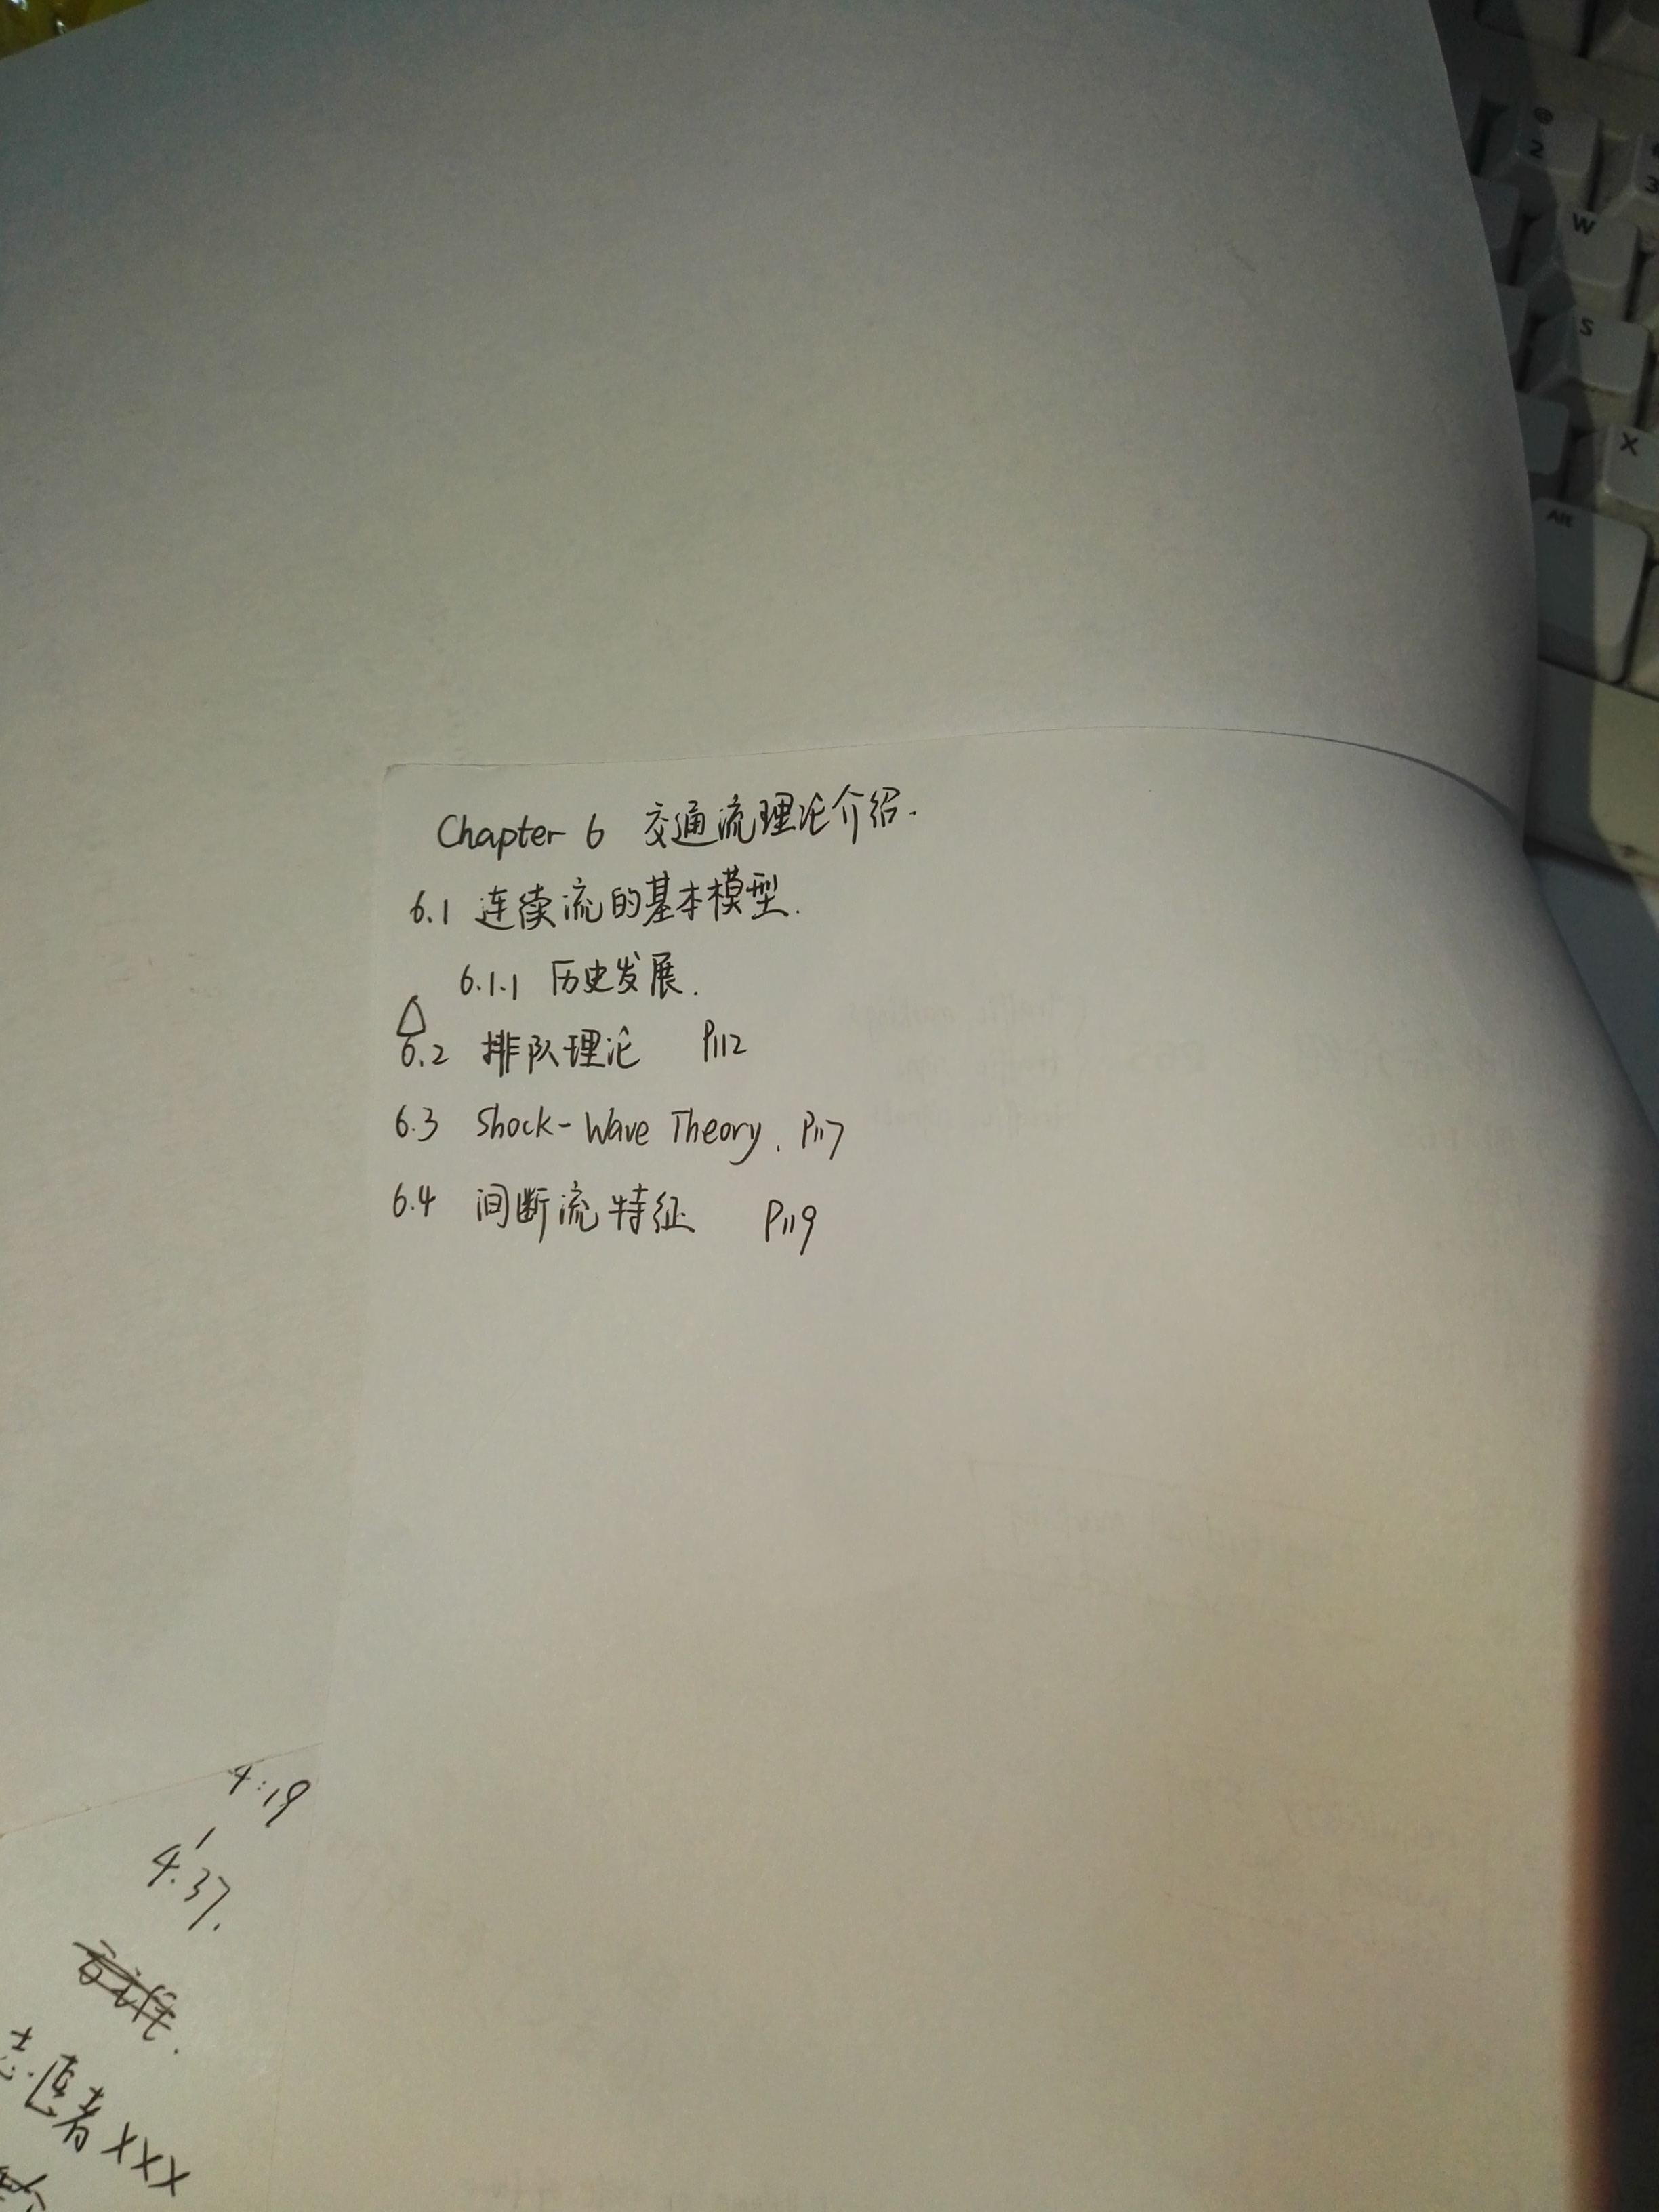 Chapter 6 交通流理论介绍.
6.1 连续流的基本模型.
6.1.1 历史发展.
6.2 排队理论 P112
6.3 Shock-Wave Theory. P117
6.4 间断流特征 P119
4:19
4.37.
者XXX
@
2
3
W
S
X
Alt